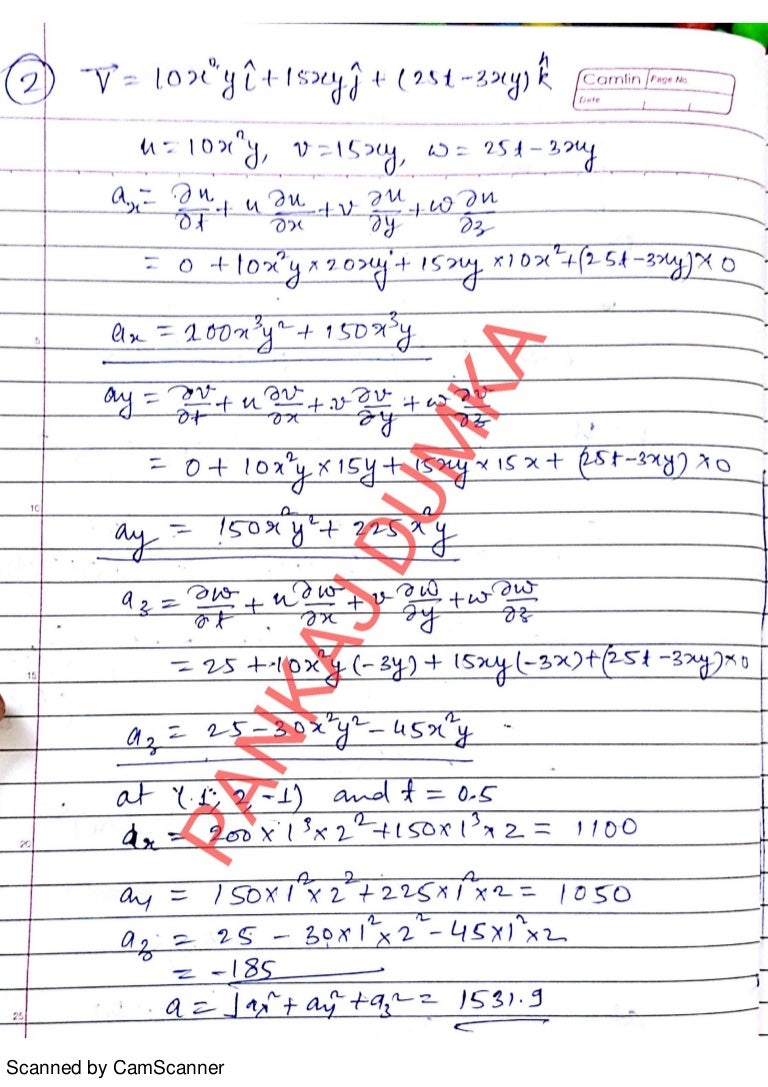 ② V⃗ = 10x²y î + 15xy ĵ + (25t - 3xy) k̂
Camlin Page No.
Date
u = 10x²y, v = 15xy, w = 25t - 3xy
aₓ = ∂u/∂t + u ∂u/∂x + v ∂u/∂y + w ∂u/∂z
= 0 + 10x²y × 20xy + 15xy × 10x² + (25t - 3xy) × 0
5
aₓ = 200x³y² + 150x³y
ay = ∂v/∂t + u ∂v/∂x + v ∂v/∂y + w ∂v/∂z
= 0 + 10x²y × 15y + 15xy × 15x + (25t - 3xy) × 0
10
ay = 150x²y² + 225x²y
az = ∂w/∂t + u ∂w/∂x + v ∂w/∂y + w ∂w/∂z
15
= 25 + 10x²y (-3y) + 15xy (-3x) + (25t - 3xy) × 0
az = 25 - 30x²y² - 45x²y
at (1, 2, -1) and t = 0.5
20
aₓ = 200 × 1³ × 2² + 150 × 1³ × 2 = 1100
ay = 150 × 1² × 2² + 225 × 1² × 2 = 1050
az = 25 - 30 × 1² × 2² - 45 × 1² × 2
= -185
25
a = √aₓ² + ay² + az² = 1531.9
PANKAJ DUMKA
Scanned by CamScanner